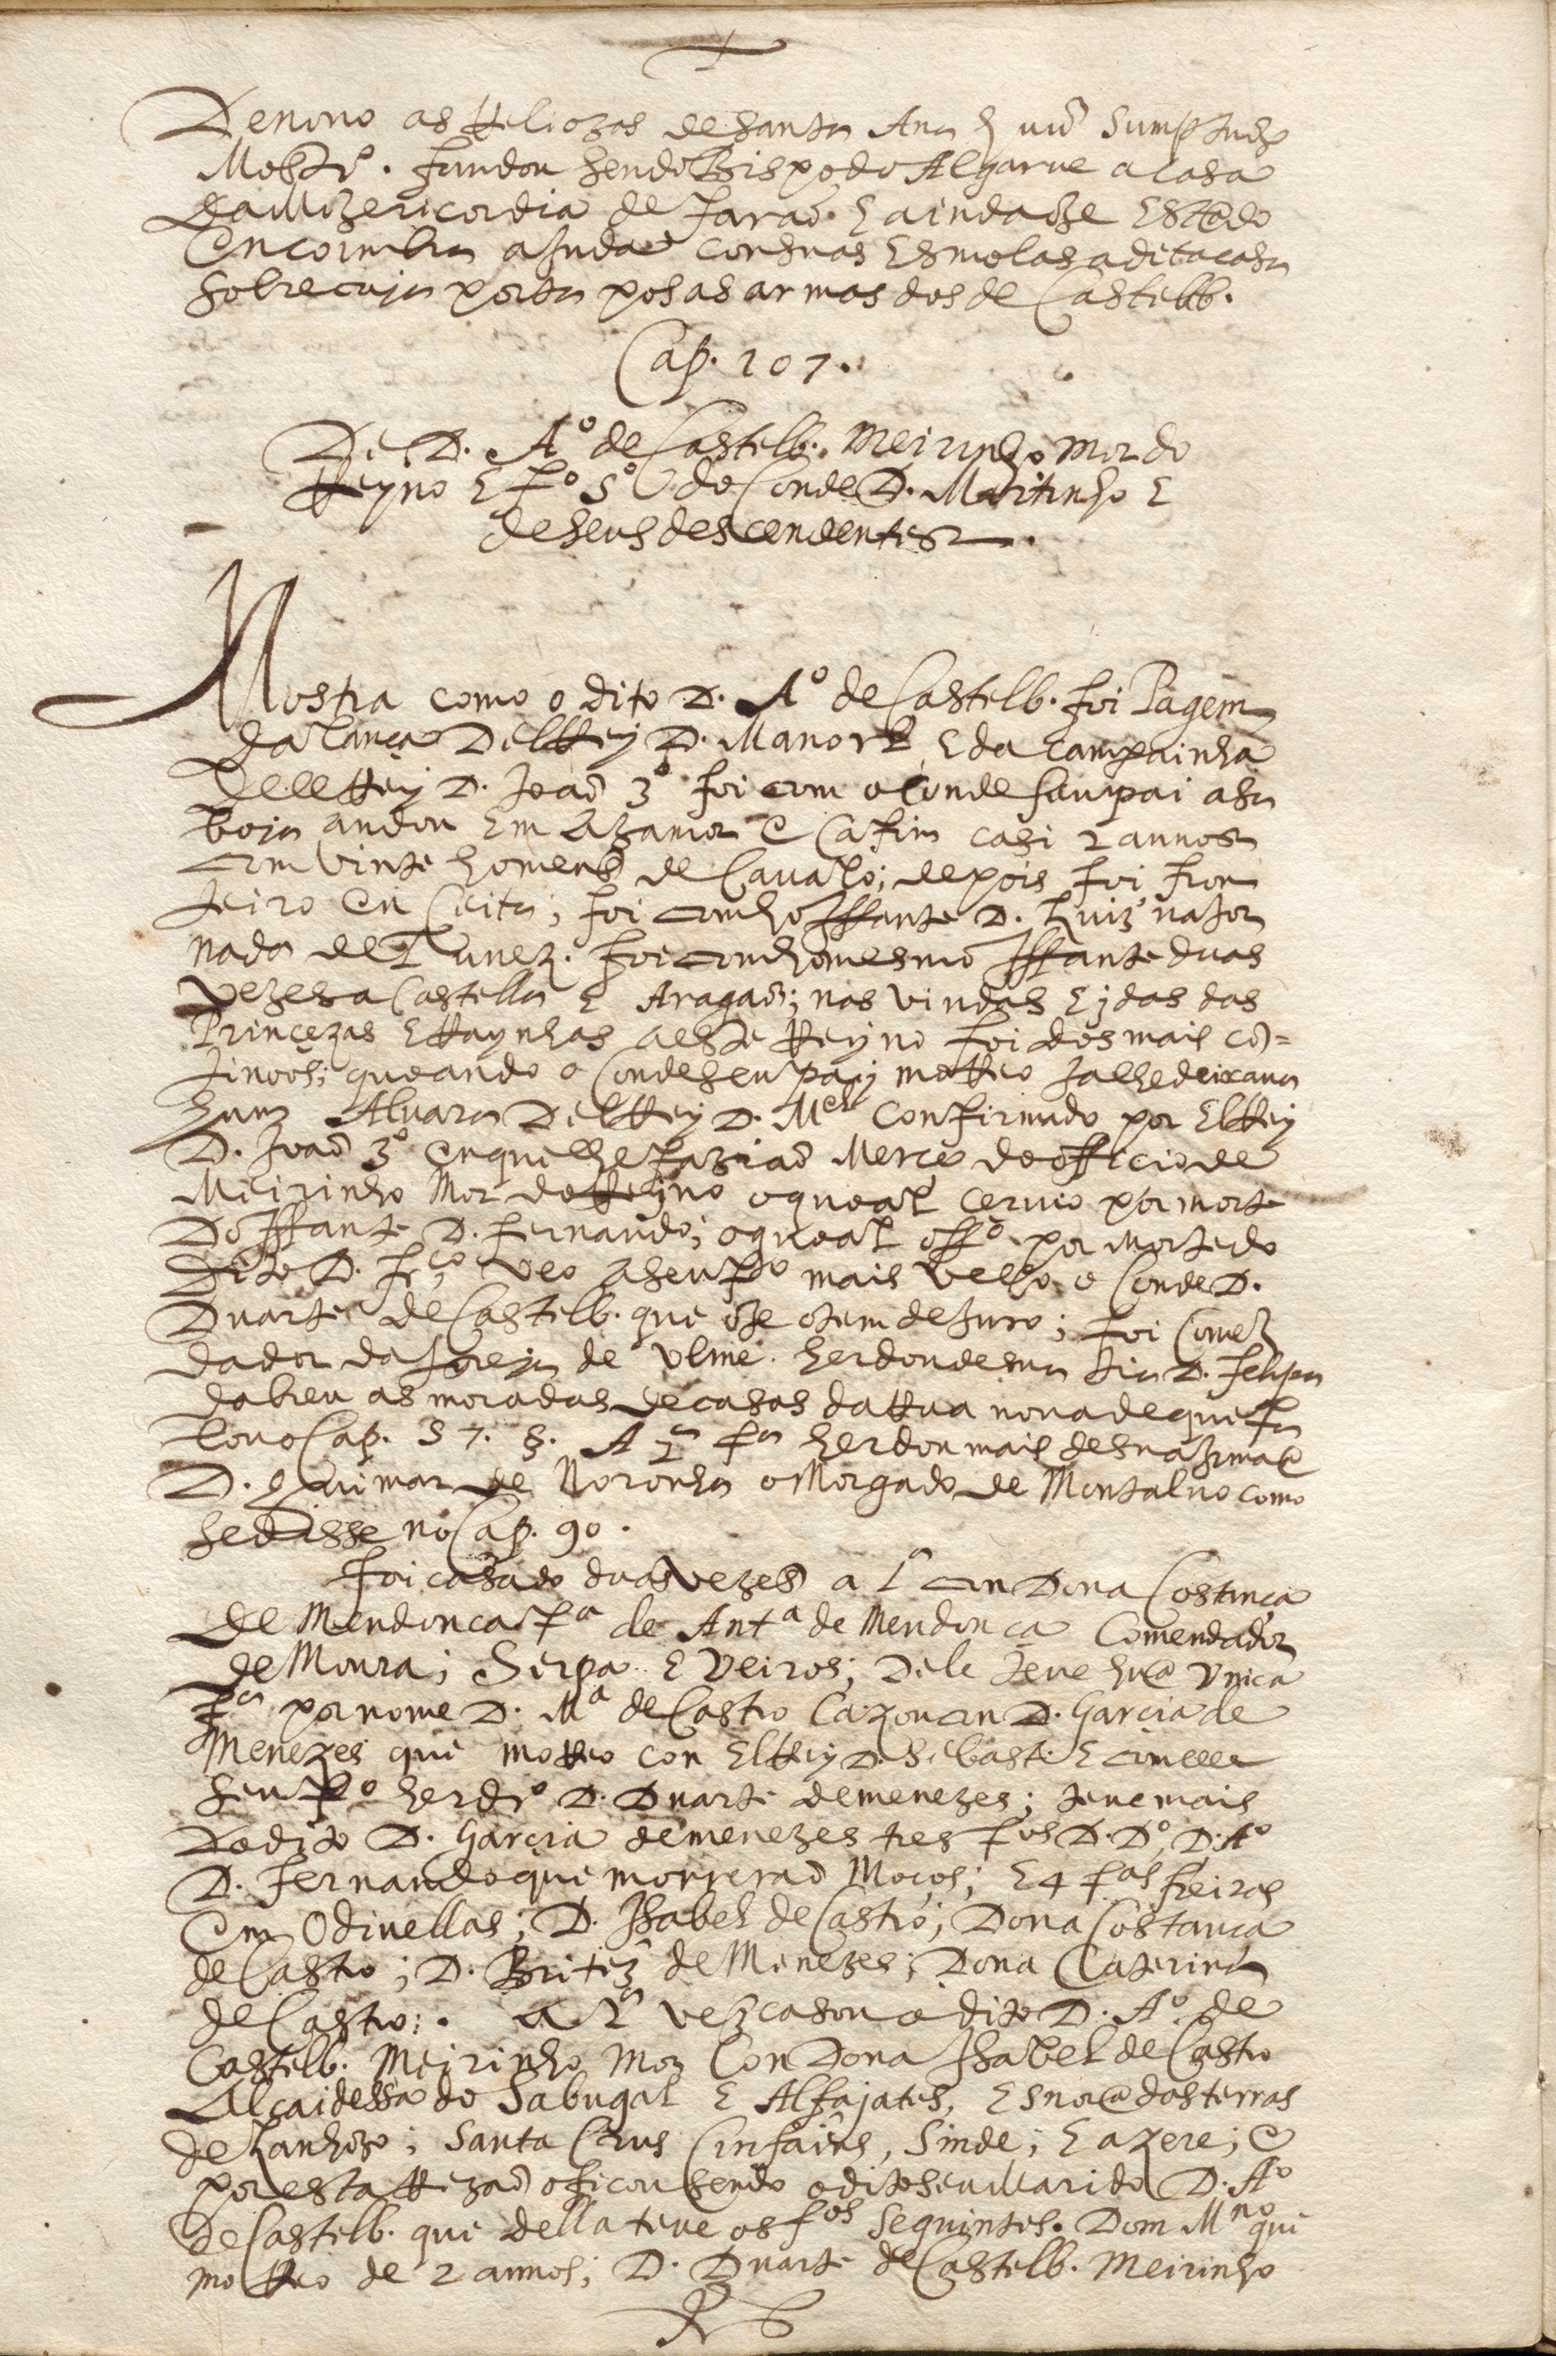 De nouo as Religiozas de Santa Ana hũ mũ Sumptuozo
Mostrº. fundou sendo Bispo do Algarue a Casa
da Mizericordia de farão. E ainda oje Estãdo
En coimbra ajuda con suas Esmolas a dita casa
Sobre cuja porta pos as armas dos de Castelb.
Cap. 107.
De D. Aº de Castelb. Meirinho Mor do
Reyno E fº 5º do Conde D. Martinho E
de seus descendentes.
Mostra como o dito D. Aº de Castelb. foi Pagem
da lança DelRey D. Manoel E da campainha
dellRey D. João 3º foi com o Conde seu pai a Sa
boja andou Em Azamor E Cafim casi 2 annos
com vinte homens de Caualo; depois foi fron
teiro En Ceita; foi com ho Iffante D. Luiz na jor
nada de Tunez. foi com ho mesmo Iffante duas
vezes a Castella E Aragão; nas vindas E jdas das
Princezas E Raynhas a este Reyno foi dos mais cõ=
tinoos; quoando o Conde seu pay morreo ja lhe deixaua
hum Aluara DelRey D. Mel Confirmado por ElRey
D. João 3º En que lhe fazião Merce do officio de
Meirinho Mor do Reyno o quoal ceruio por morte
Do Iffante D. fernando; o quoal offº por morte do
dito D. frco veo a seu fº mais velho o Conde D.
Duarte de Castelb. que oje o tem de juro; foi Comen
dador da Igreja de Vlme. herdou de sua tia D. felipa
dabreu as moradas de casas da Rua noua de que fa
lou o Cap. 57. §. A 2ª fª herdou mais de sua Irmã
D. Guimar de Noronha o Morgado de Montaluo como
Se disse no Cap. 90.
Foi casado duas vezes a 1ª con Dona Costança
de Mendonca fª de Antº de Mendonça Comendador
de Moura; Serpa E Veiros; Dele teue huã Vnica
fª por nome D. Mª de Castro cazou con D. Garcia de
Menezes que morreo con ElRey D. Sebast. E com elle
seu fº herdrº D. Duarte de menezes; teue mais
Do dito D. Garcia de menezes tres fos D. Dº, D. Aº
D. Fernando que morrerão Moços; E 4 fas freiras
Em Odiuellas; D. Isabel de Castro; Dona Costança
de Castro; D. Britez de Menezes; Dona Caterina
de Castro;. a 2ª vez casou o dito D. Aº de
Castelb. Meirinho Mor Con Dona Isabel de Castro
Alcaidessa do Sabugal E Alfajates, E Snorã das terras
de Lanhozo; Santa Crus Cinfains, Sinde; E azere; E
por esta Rezão o ficou sendo o dito seu Marido D. Aº
de Castelb. que della teue os fos Seguintes. Dom Mno que
morreo de 2 annos; D. Duarte de Castelb. Meirinho